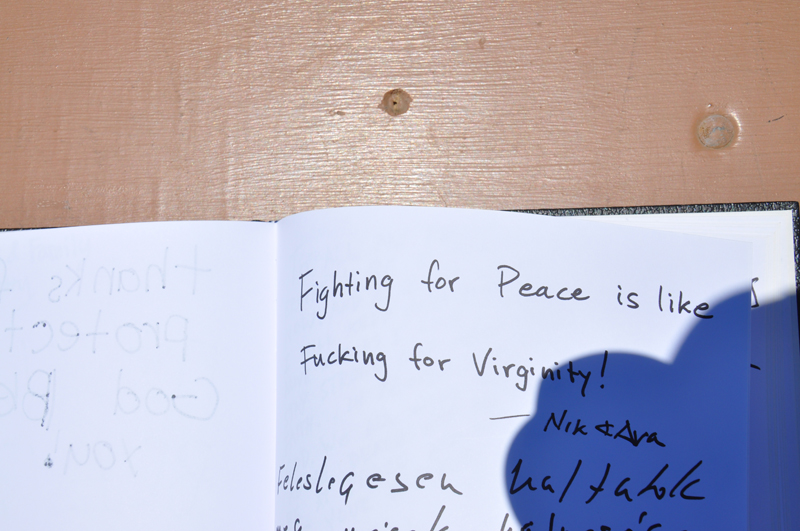 Fighting for Peace is like
Fucking for Virginity!
— Nik & Ava
Feleslegesen haltatok